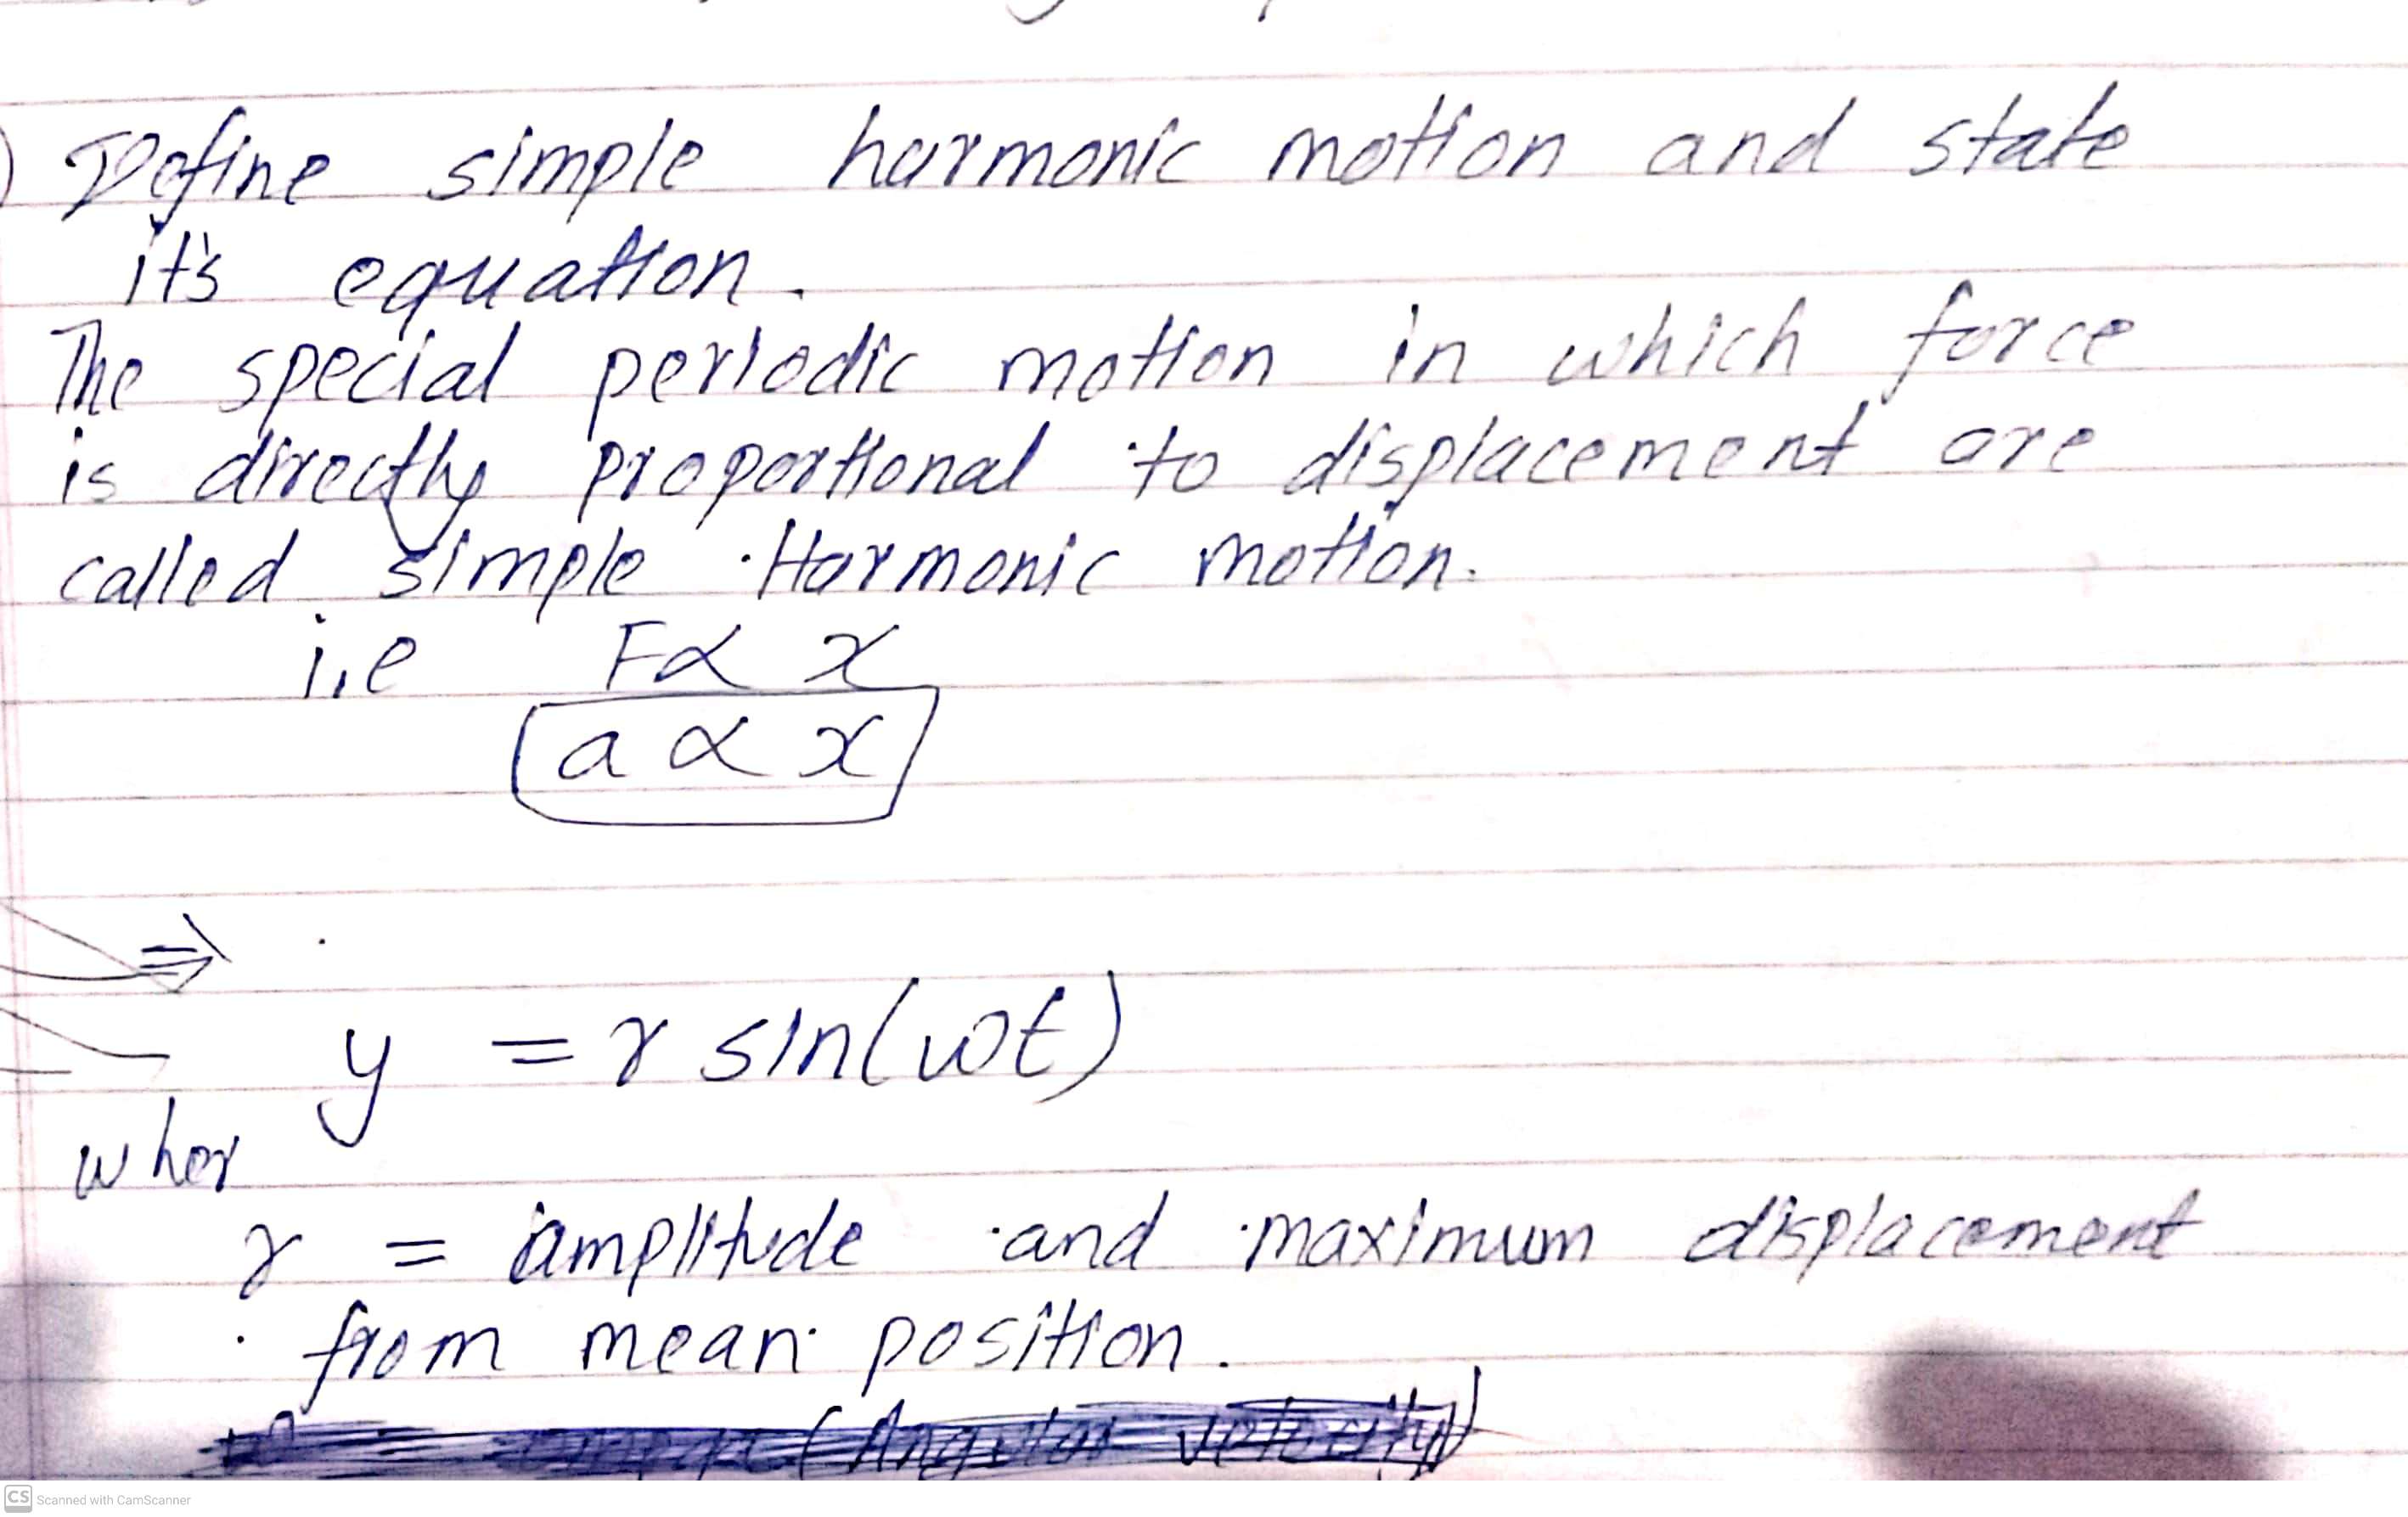 ) Define simple harmonic motion and state
it's equation.
The special periodic motion in which force
is directly proportional to displacement are
called simple Harmonic motion.
i.e F∝ x
a ∝ x
⇒
y = r sin(ωt)
wher
r = amplitude and maximum displacement
from mean position.
omega (Angular velocity)
CS Scanned with CamScanner